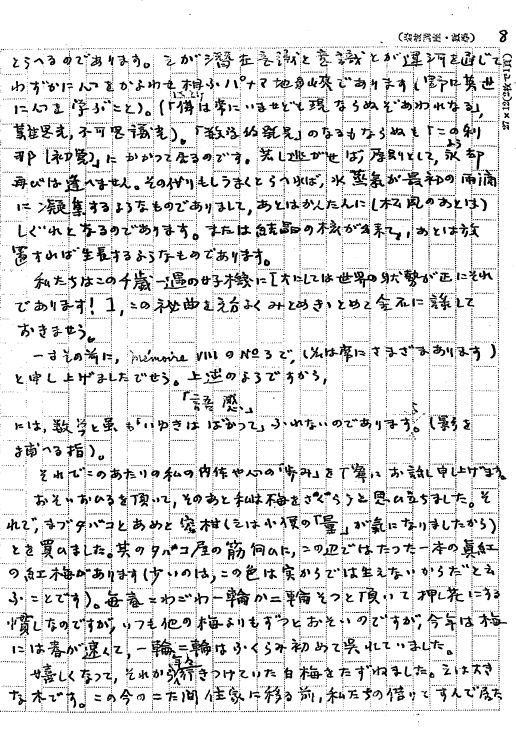 8
とらへるのであります。之が潜在意識と意識とが運河を通じて
わずかに人々をかよわせ相ふパナマ地峡であります
に人を学ぶこと)。(「佛は常にいませども現ならぬぞあわれなる」,
不可思議光)。「数学的発見」のなるもならぬも「この刹
那[初発]」にかかつて居るのです。若し逃がせば,原則として,永却
再びは逢へません。その代りもしうまくとらへれば,水蒸気が最初の雨滴
に凝集するようなものでありまして,あとはかんたんに(松風のあとは)
しぐれとなるのであります。または結晶の核が出来て,あとは放
置すれば生長するようなものであります。
私たちはこの千歳一遇の好機に[大にしては世界の状勢が正にそれ
であります!],この秘曲を充分よくみとめきとめて金石に録して
おきませう。
一寸その前に,mémoire VIIIのNo 3で,(私は常にさまざまあります)
と申し上げましたでせう。上述のようですから,
「語感」
には,数学と雖も「いゆきはばかつて」ふれないのであります。(影を
捕へる指)。
それでこのあたりの私の内作や心の「歩み」を丁寧にお話し申し上げます。
おそいおひるを頂いて,そのあと私は梅をさぐらうと思ひ立ちました。そ
れで,まづタバコとあめと蜜柑(之は小俣の「量」が気になりましたから)
とを買ひました。其のタバコ屋の筋向ひに,この辺ではたつた一本の真紅
の紅梅があります(少いのは,この色は実からでは生えないからだと云
ふことです)。毎春こわごわ一輪か二輪そつと頂いて押し花にする
慣しなのですが,いつも他の梅よりもずつとおそいのですが,今年は梅
には春が速くて,一輪二輪はふくらみ初めて呉れていました。
嬉しくなつて,それから行きつけていた白梅をたずねました。之は大き
な木です。この今の二た間住家に移る前,私たちの借りてすんで居た